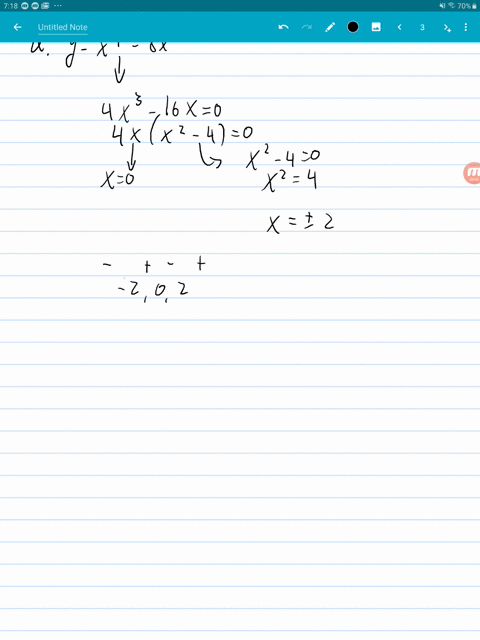 7:18
70%
Untitled Note
3
4x³ - 16x = 0
4x(x² - 4) = 0
x = 0
x² - 4 = 0
x² = 4
x = ± 2
- + - +
-2, 0, 2